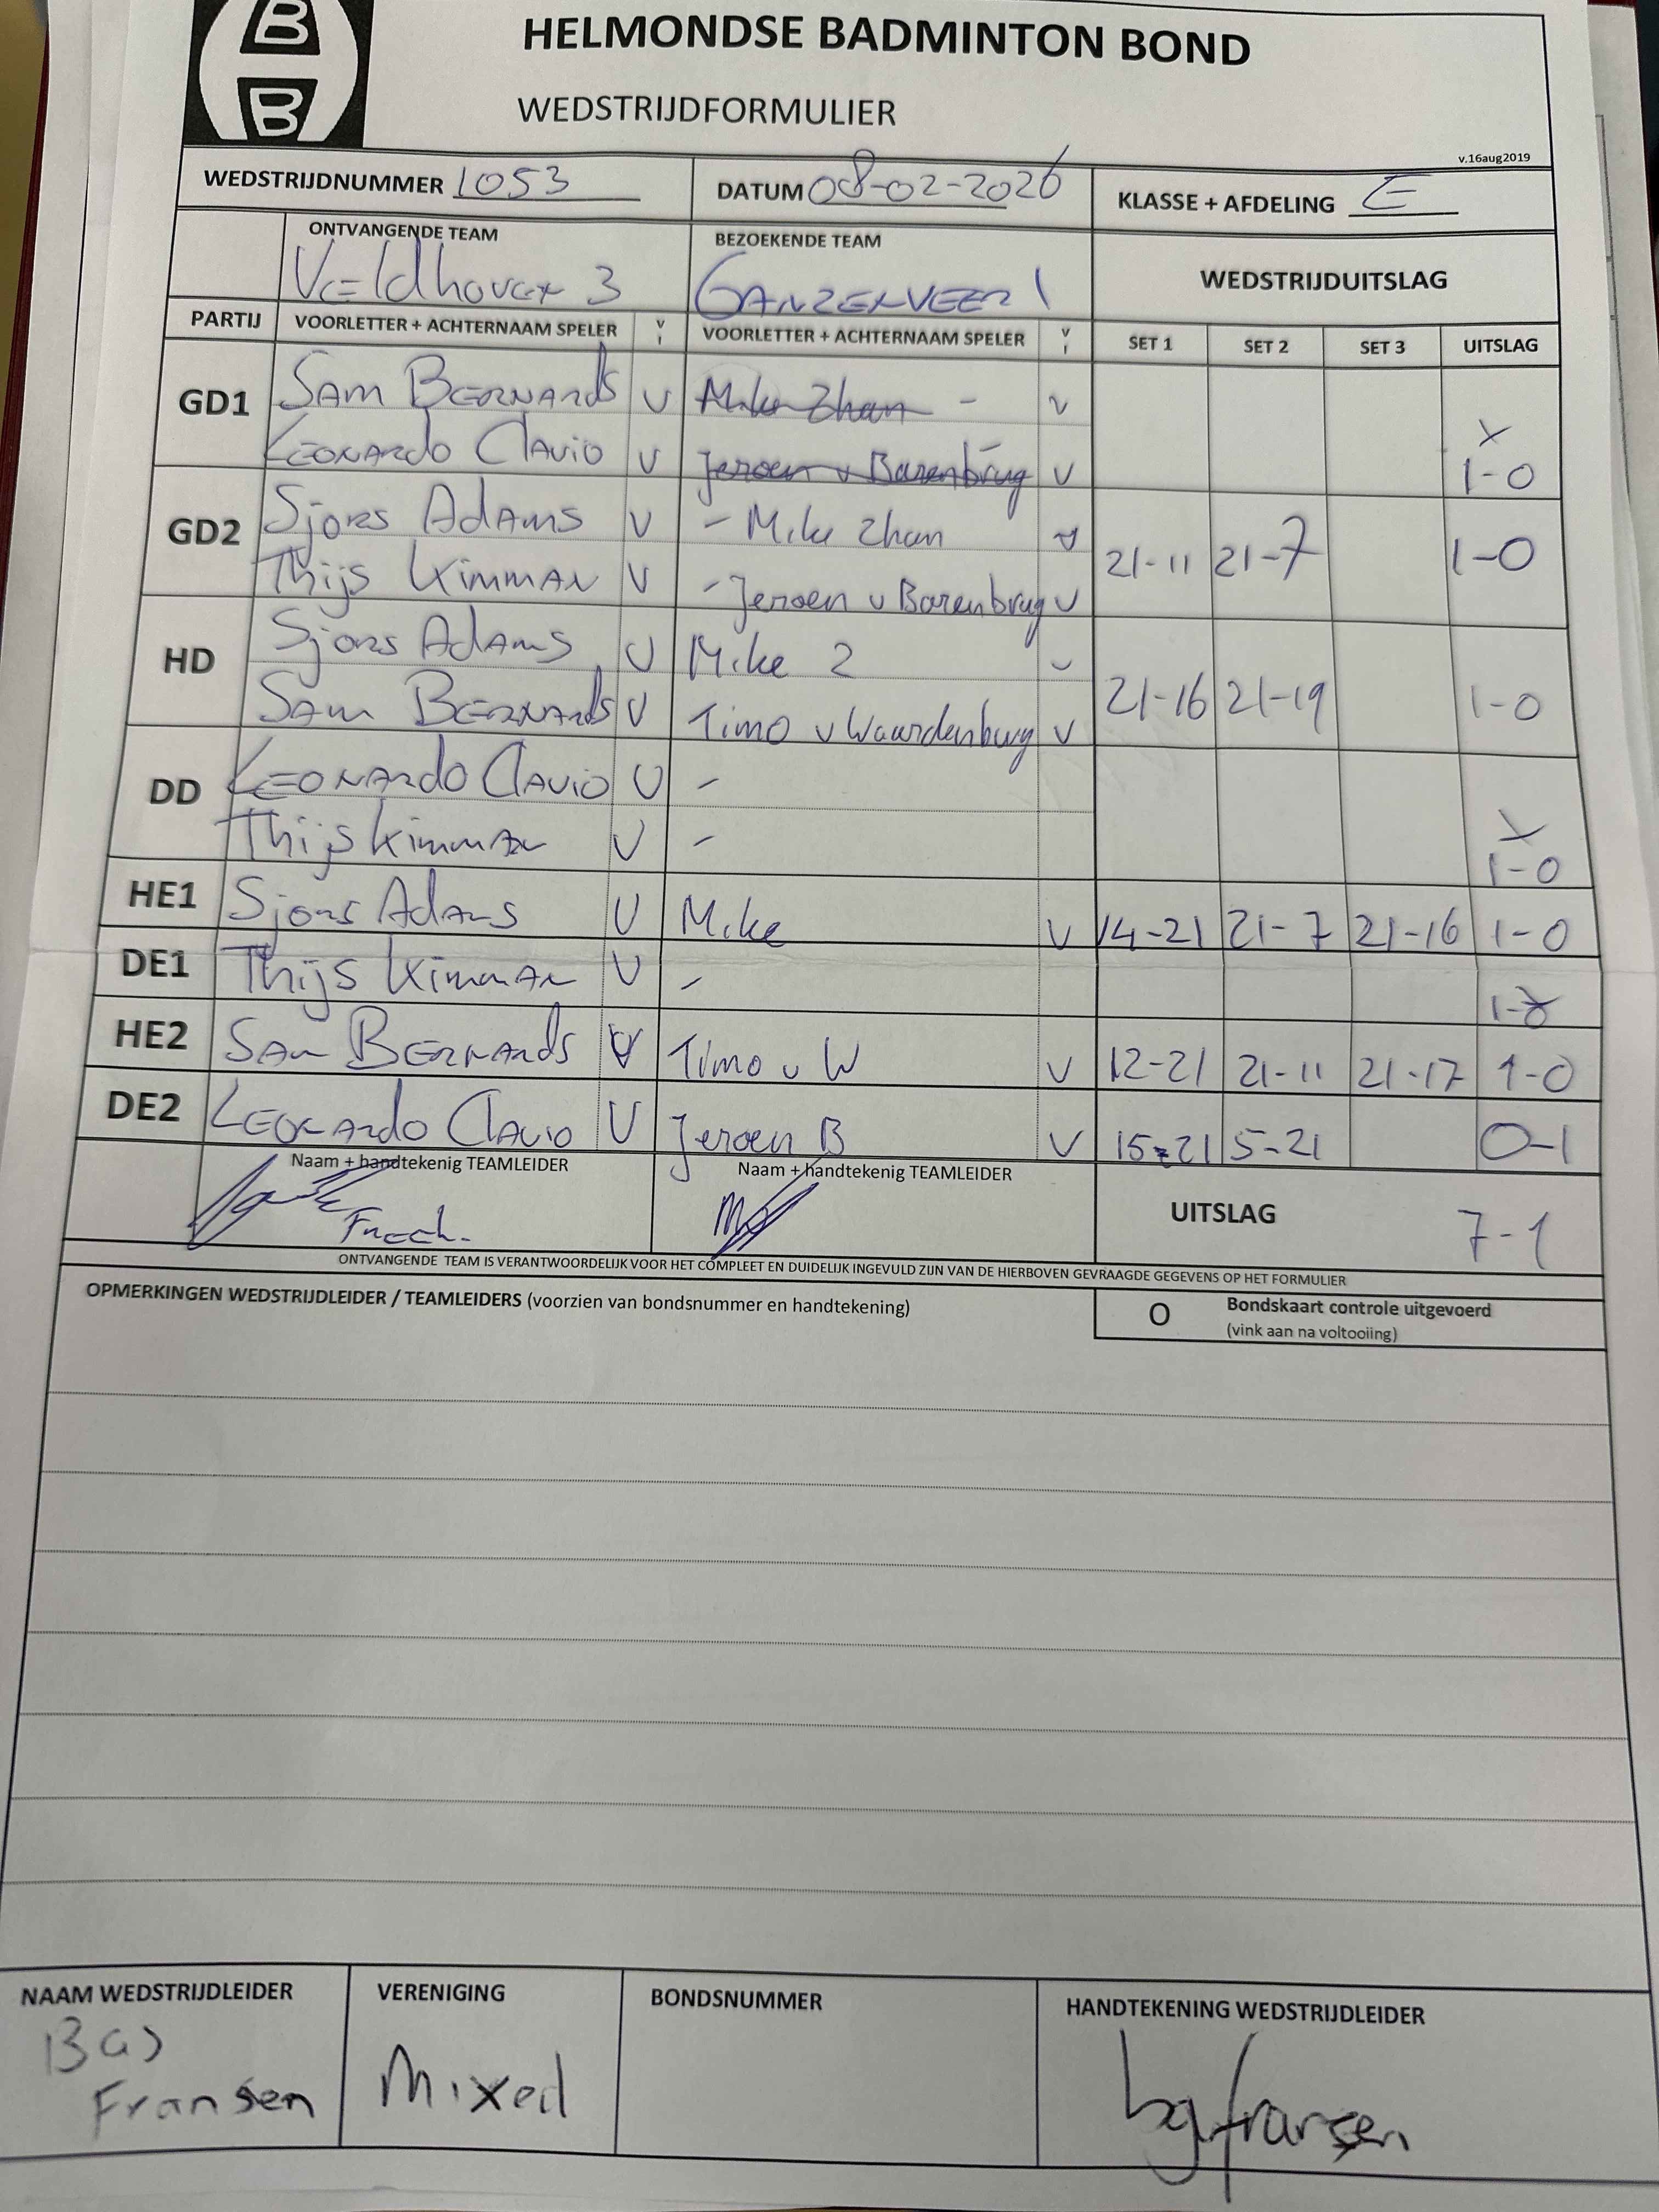 B
B
HELMONDSE BADMINTON BOND
WEDSTRIJDFORMULIER
v.16aug2019
WEDSTRIJDNUMMER 1053 DATUM 08-02-2026 KLASSE + AFDELING E
ONTVANGENDE TEAM BEZOEKENDE TEAM WEDSTRIJDUITSLAG
Veldhoven 3 GANZENVEER 1
PARTIJ VOORLETTER + ACHTERNAAM SPELER V I VOORLETTER + ACHTERNAAM SPELER V I SET 1 SET 2 SET 3 UITSLAG
GD1 SAM BERNARds V Mike Zhan - V
LEONARdo ClAviO V Jeroen v Barenbrug V X 1-0
GD2 Sjors AdAms V - Mike Zhan V 21-11 21-7 1-0
Thijs KimmAN V - Jeroen v Barenbrug V
HD Sjors AdAms V Mike Z V 21-16 21-19 1-0
SAm BERNARds V Timo v Waardenburg V
DD LEONARdo ClAviO V -
Thijs KimmAN V - X 1-0
HE1 Sjors AdAms V Mike V 14-21 21-7 21-16 1-0
DE1 Thijs KimmAN V - 1-0
HE2 SAm BERNARds V Timo v W V 12-21 21-11 21-17 1-0
DE2 LEONARdo ClAviO V Jeroen B V 15-21 5-21 0-1
Naam + handtekenig TEAMLEIDER Naam + handtekenig TEAMLEIDER
UITSLAG 7-1
ONTVANGENDE TEAM IS VERANTWOORDELIJK VOOR HET COMPLEET EN DUIDELIJK INGEVULD ZIJN VAN DE HIERBOVEN GEVRAAGDE GEGEVENS OP HET FORMULIER
OPMERKINGEN WEDSTRIJDLEIDER / TEAMLEIDERS (voorzien van bondsnummer en handtekening) O Bondskaart controle uitgevoerd
(vink aan na voltooiing)
NAAM WEDSTRIJDLEIDER VERENIGING BONDSNUMMER HANDTEKENING WEDSTRIJDLEIDER
Bas
Fransen Mixed bgfransen